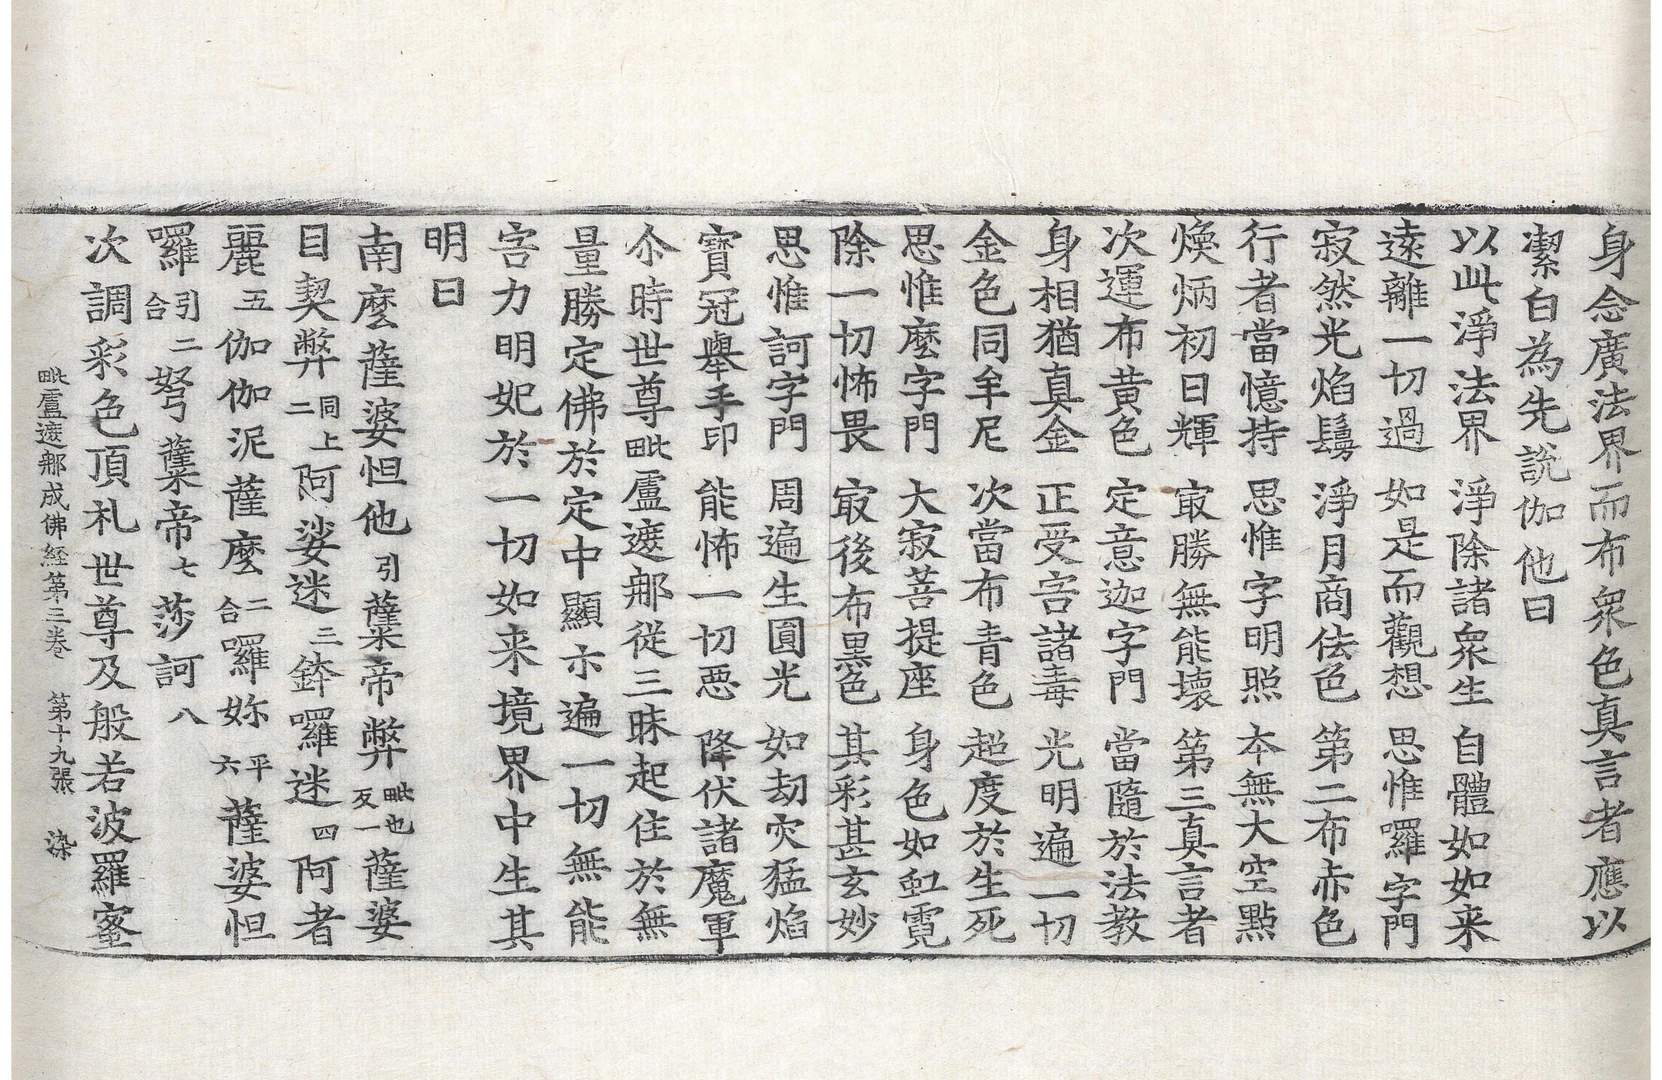 身念廣法界而布衆色真言者應以
潔白為先說伽他曰
以此淨法界 淨除諸衆生 自體如如来
遠離一切過 如是而觀想 思惟囉字門
寂然光焰鬘 淨月商佉色 第二布赤色
行者當憶持 思惟字明照 夲無大空點
煥炳初日輝 㝡勝無能壞 第三真言者
次運布黄色 定意迦字門 當隨於法教
身相猶真金 正受害諸毒 光明遍一切
金色同牟尼 次當布青色 超度於生死
思惟麽字門 大寂菩提座 身色如虹霓
除一切怖畏 㝡後布黒色 其彩甚玄妙
思惟訶字門 周遍生圓光 如劫灾猛焰
寶冠舉手印 能怖一切惡 降伏諸魔軍
尒時世尊毗盧遮那従三昧起住於無
量勝定佛於定中顯示遍一切無能
害力明妃於一切如来境界中生其
明曰
南麽薩婆怛他引蘖帝弊毗也反一薩婆
目契弊同上二阿娑迷三鉢囉迷四阿者
麗五伽伽泥薩麽二合囉妳平六薩婆怛
囉引二合弩蘖帝七莎訶八
次調彩色頂礼世尊及般若波羅蜜
毗盧遮那成佛経第三卷 第十九張 染